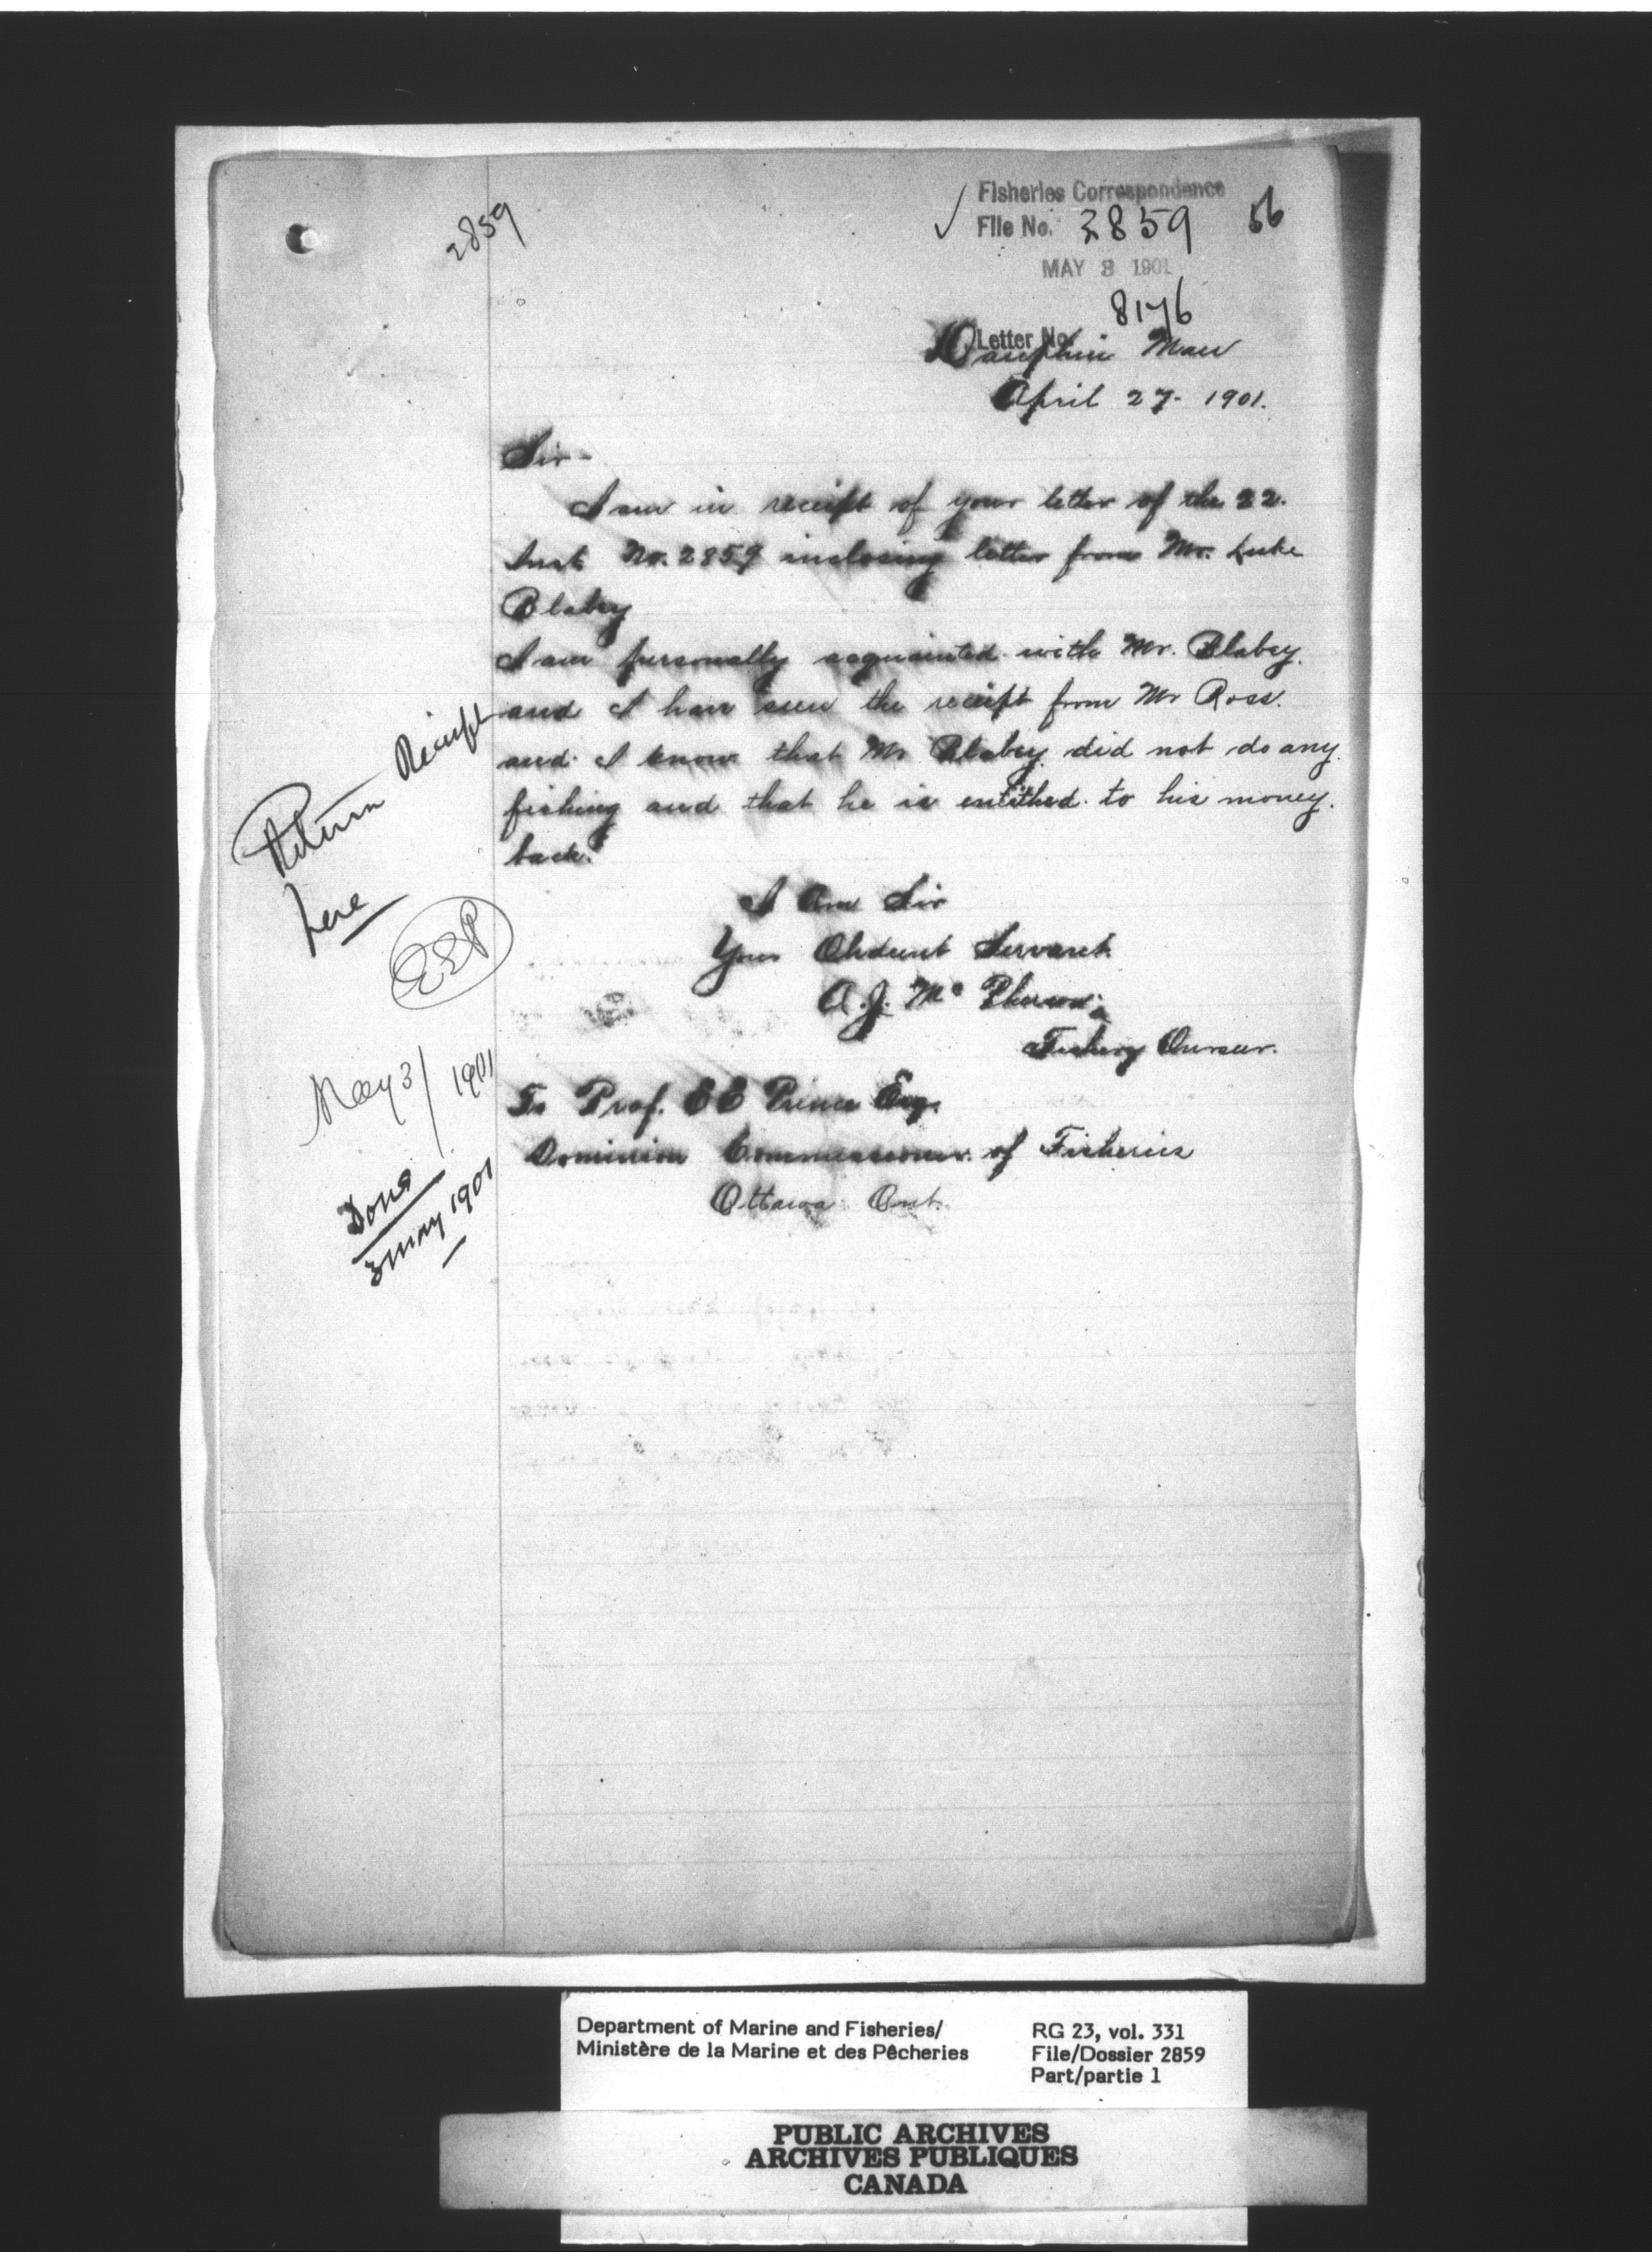 2859
Fisheries Correspondence
File No. 2859 56
MAY 3 1901
8176
Letter No.
Dauphin Man
April 27- 1901.
Sir-
I am in receipt of your letter of the 22.
Inst No. 2859 inclosing letter from Mr. Luke
Blabey
I am personally acquainted with Mr. Blabey.
and I have seen the receipt from Mr Ross.
and I know that Mr Blabey did not do any
fishing and that he is entitled to his money.
back.
I Am Sir
Your Obdeunt Servant.
A. J. Mc Pherson
Fishery Overseer.
To Prof. EE Prince Esq.
Dominion Commissioner of Fisheries
Ottawa Ont.
Return Receipt
here
EEP
May 3/1901
Done
3 May 1901
Department of Marine and Fisheries/
Ministère de la Marine et des Pêcheries
RG 23, vol. 331
File/Dossier 2859
Part/partie 1
PUBLIC ARCHIVES
ARCHIVES PUBLIQUES
CANADA